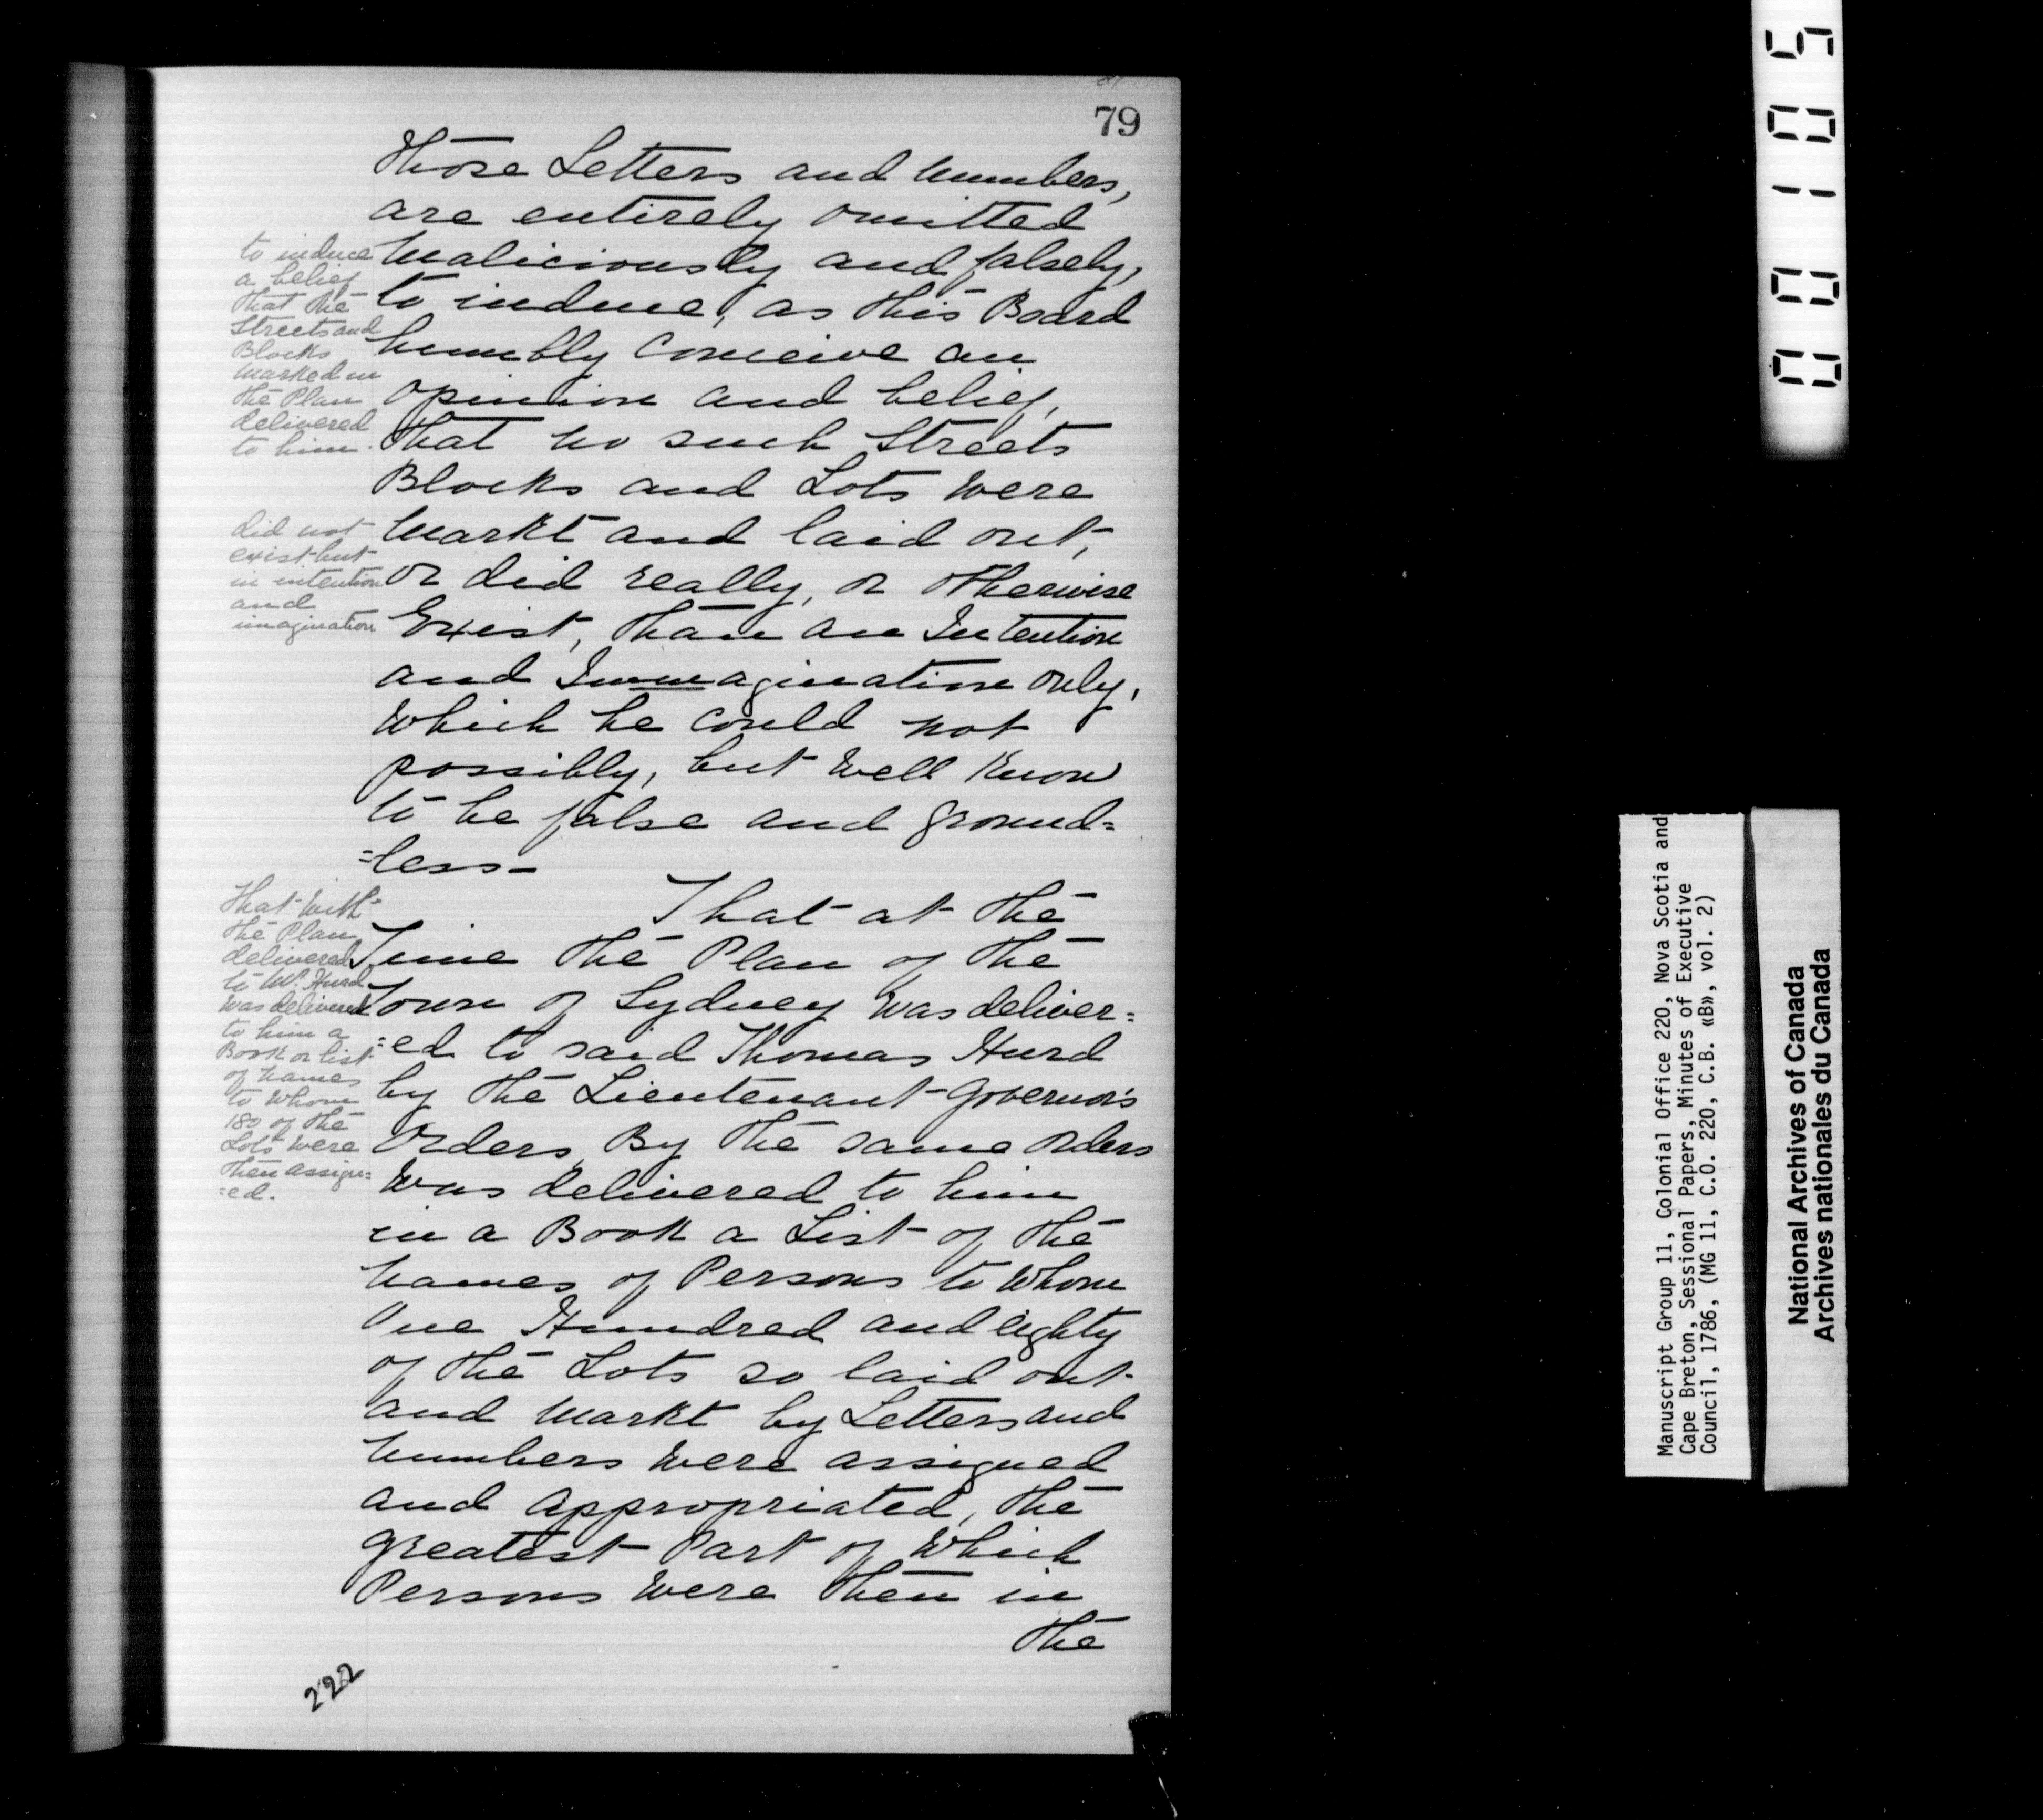 79
Those Letters and Numbers,
are entirely omitted
Maliciously and falsely,
to induce, as this Board
humbly Conceive an
opinion and belief,
that no such Streets
Blocks and Lots Were
Markt and laid out,
or did really, or otherwise
Exist, than an Intention
and Immagination only,
Which he Could not
possibly, but Well Know
to be false and ground=
=less-
That at the
Time the Plan of the
Town of Sydney Was deliver=
=ed to said Thomas Hurd
by the Lieutenant-Governor's
Orders, By the same orders
Was delivered to him
in a Book a List of the
Names of Persons to Whom
One Hundred and eighty
of the Lots so laid out
and Markt by Letters and
Numbers Were assigned
and appropriated, the
greatest Part of Which
Persons Were then in
the
to induce
a belief
that the
Streets and
Blocks
Marked in
the Plan
delivered
to him.
did not
exist but
in intention
and
imagination
That With
the Plan
delivered
to Mr. Hurd
Was delivered
to him a
Book or list
of Names
to Whom
180 of the
Lots Were
then assign=
=ed.
222
00105
Manuscript Group 11, Colonial Office 220, Nova Scotia and
Cape Breton, Sessional Papers, Minutes of Executive
Council, 1786, (MG 11, C.O. 220, C.B. «B», vol. 2)
National Archives of Canada
Archives nationales du Canada